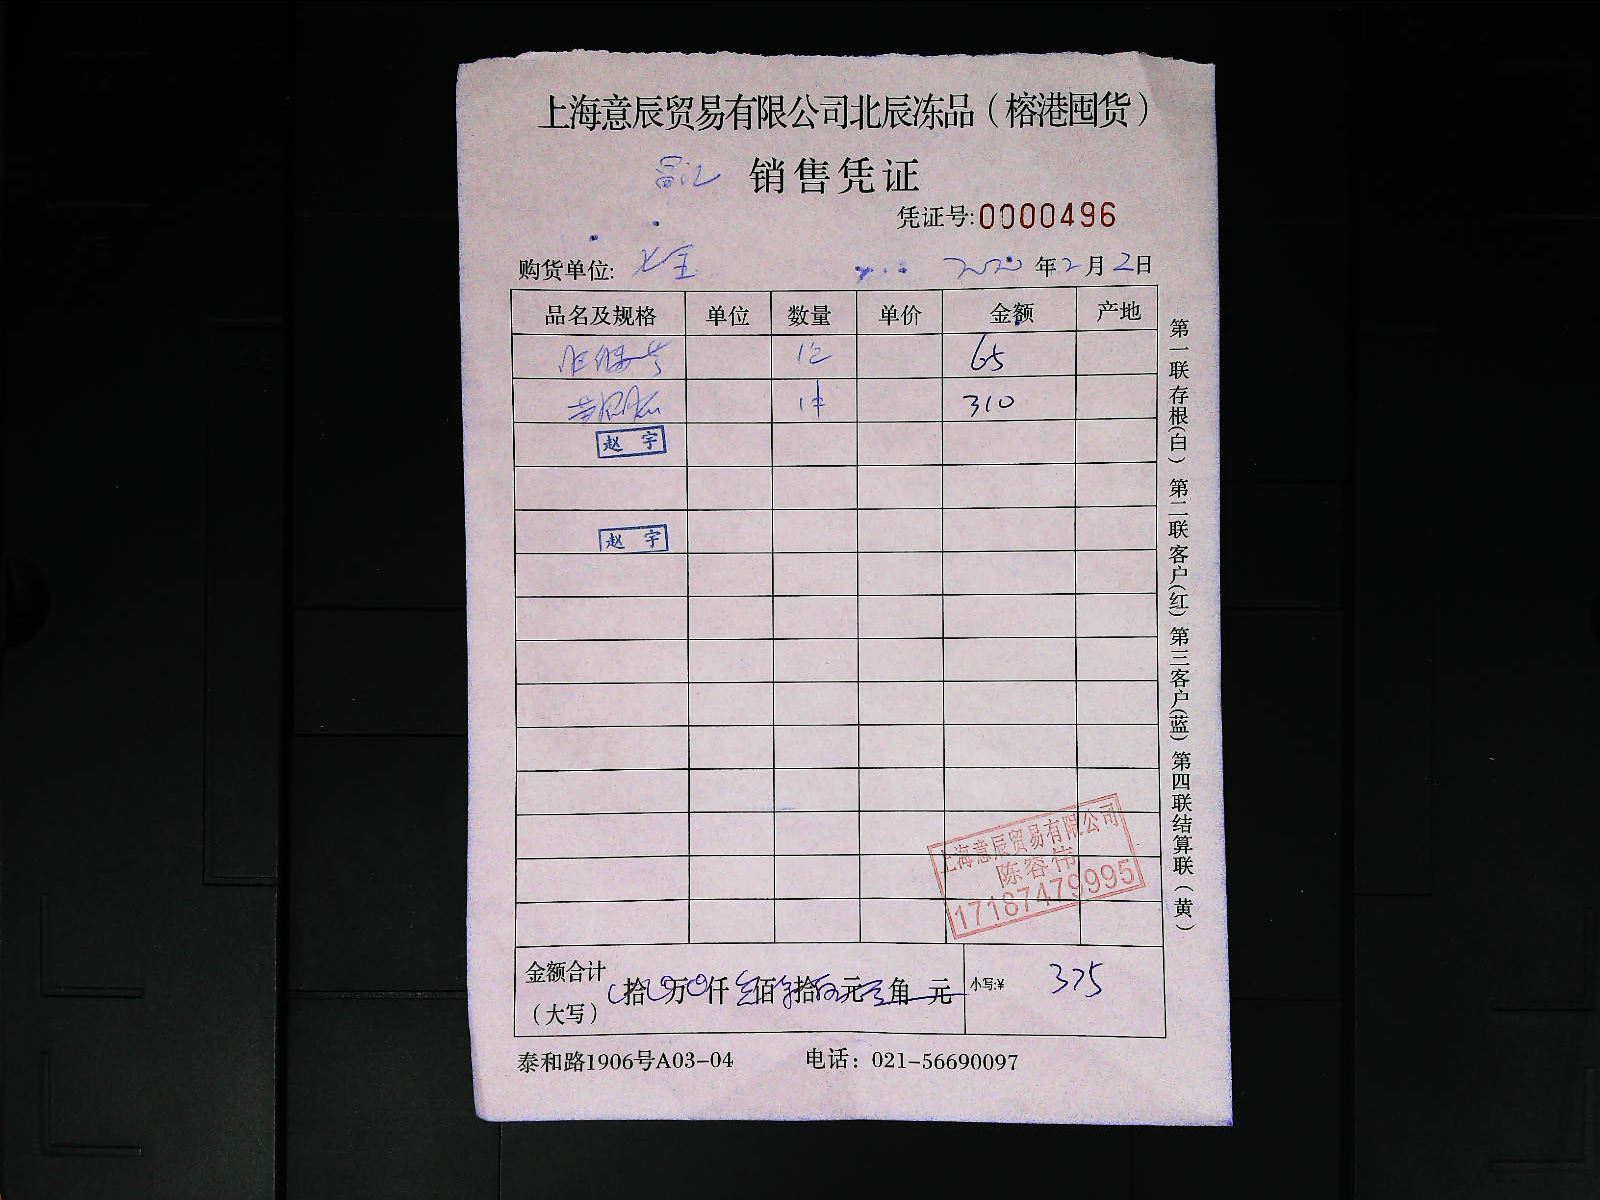 上海意辰贸易有限公司北辰冻品（榕港囤货）
销售凭证
凭证号:0000496
购货单位:
2020年2月2日
品名及规格 单位 数量 单价 金额 产地
65
310
赵 宇
赵 宇
上海意辰贸易有限公司
陈容伟
17187479995
金额合计（大写） 拾 万 仟 佰 拾 元 角 元 小写:¥ 375
泰和路1906号A03-04 电话：021-56690097
第一联存根(白) 第二联客户(红) 第三客户(蓝) 第四联结算联(黄)